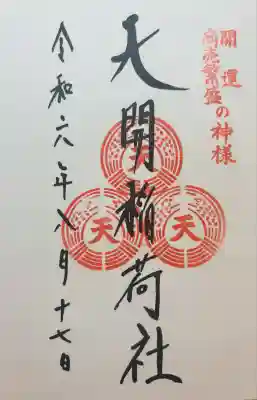 開運
商売繁盛の神様
天開稲荷社
天
天
令和六年八月十七日